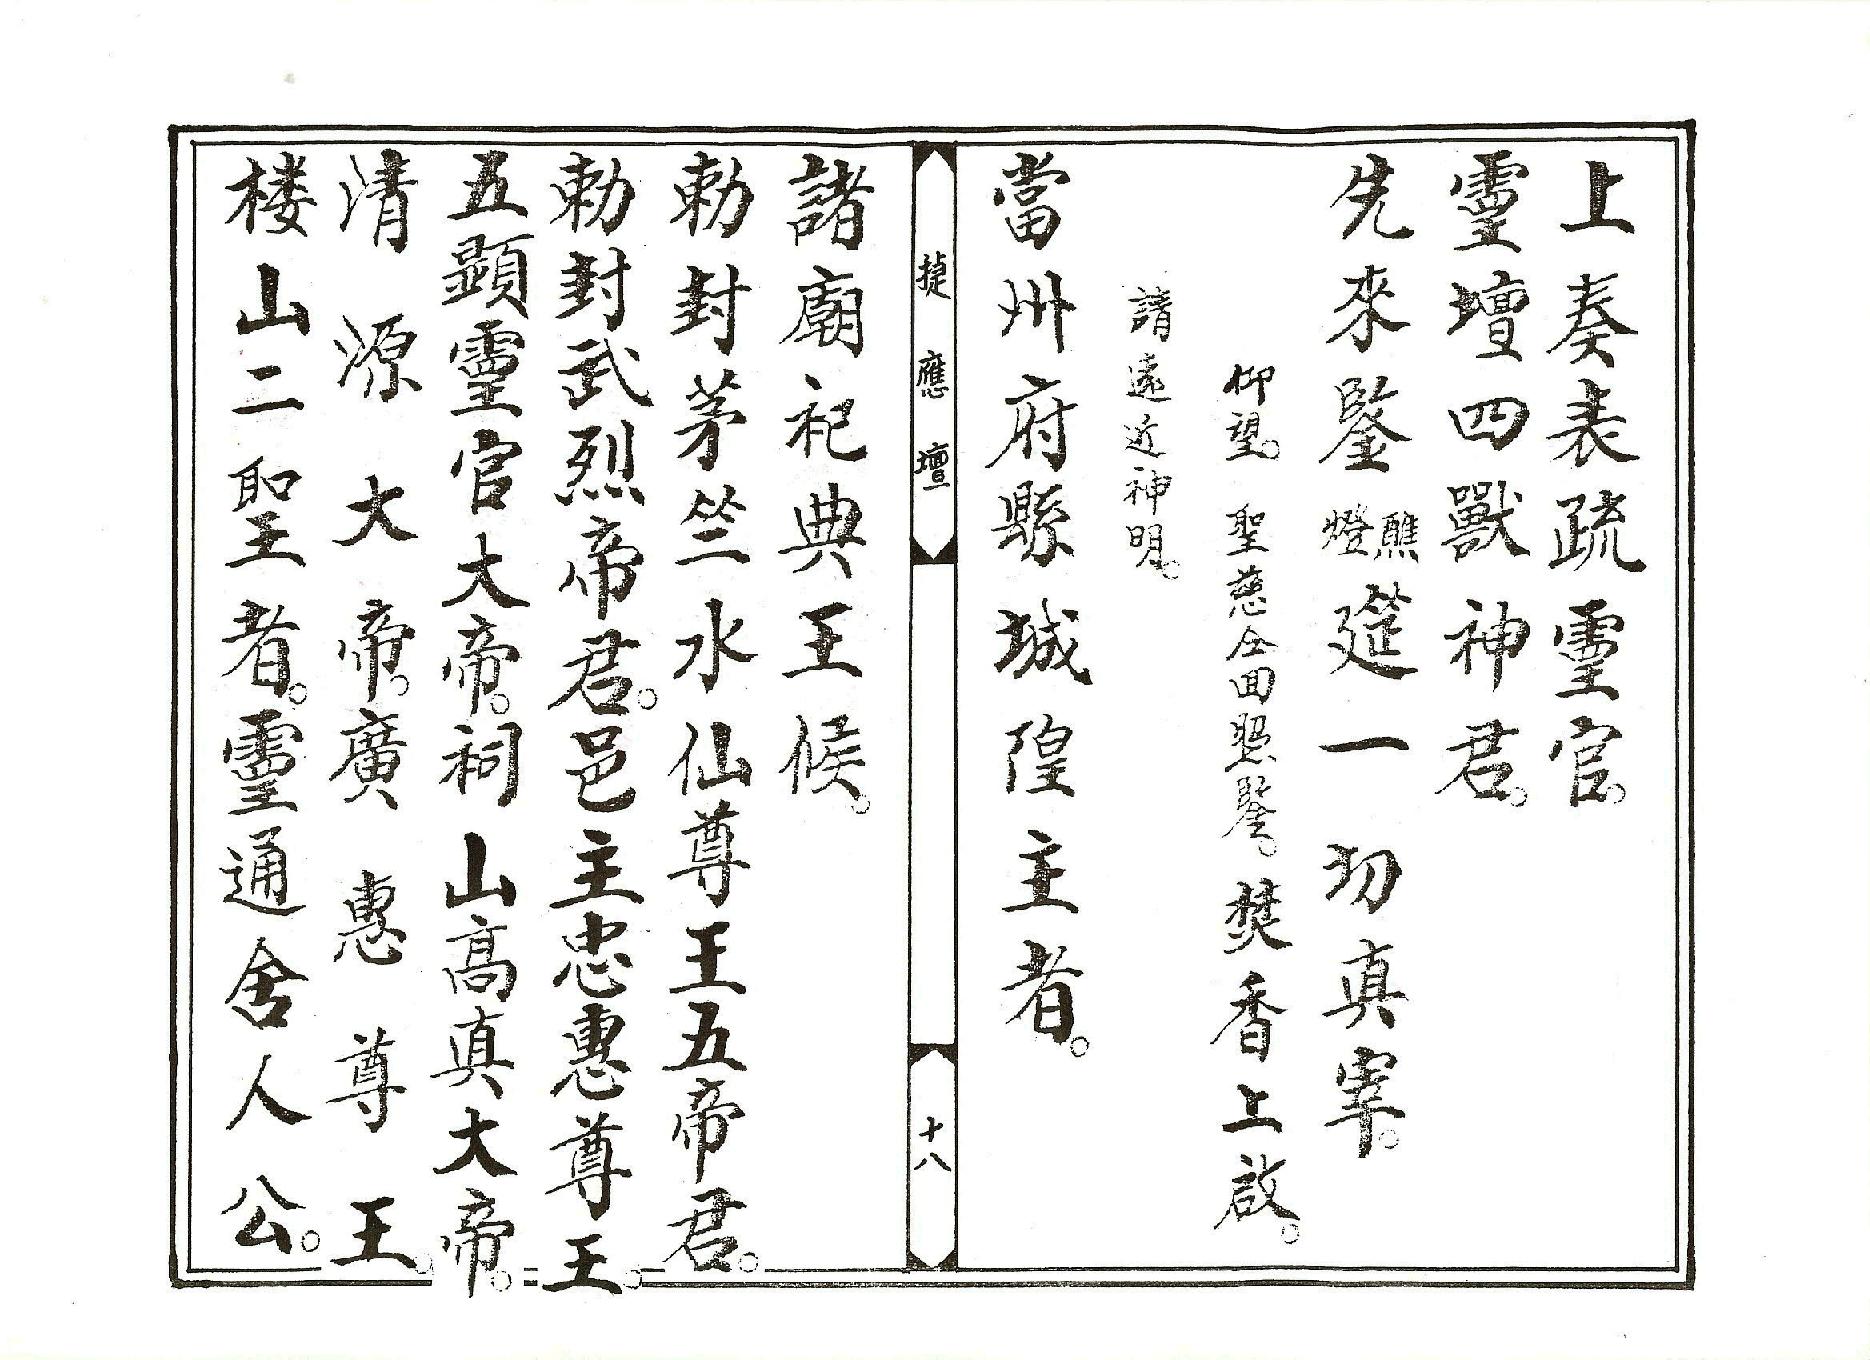 上奏表疏靈官。
靈壇四獸神君。
先來鑒醮燈筵一切真宰。
仰望。聖慈仝回照鑒。焚香上啟。
請遠近神明。
當州府縣城隍主者。
捷應壇
十八
諸廟祀典王候。
勅封茅竺水仙尊王五帝君。
勅封武烈帝君。邑主忠惠尊王。
五顕靈官大帝。祠山高真大帝。
清源大帝。廣惠尊王。
楼山二聖者。靈通舍人公。